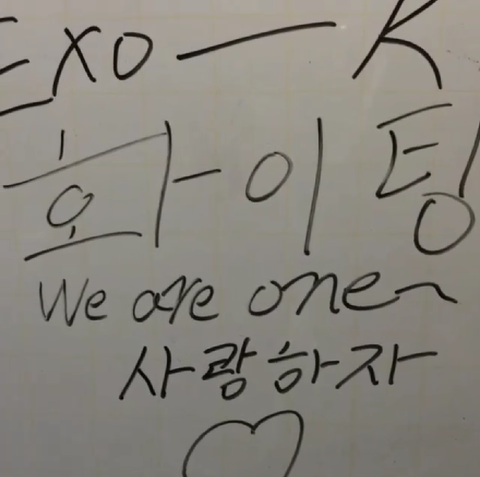 EXO — K
화이팅
We are one~
사랑하자